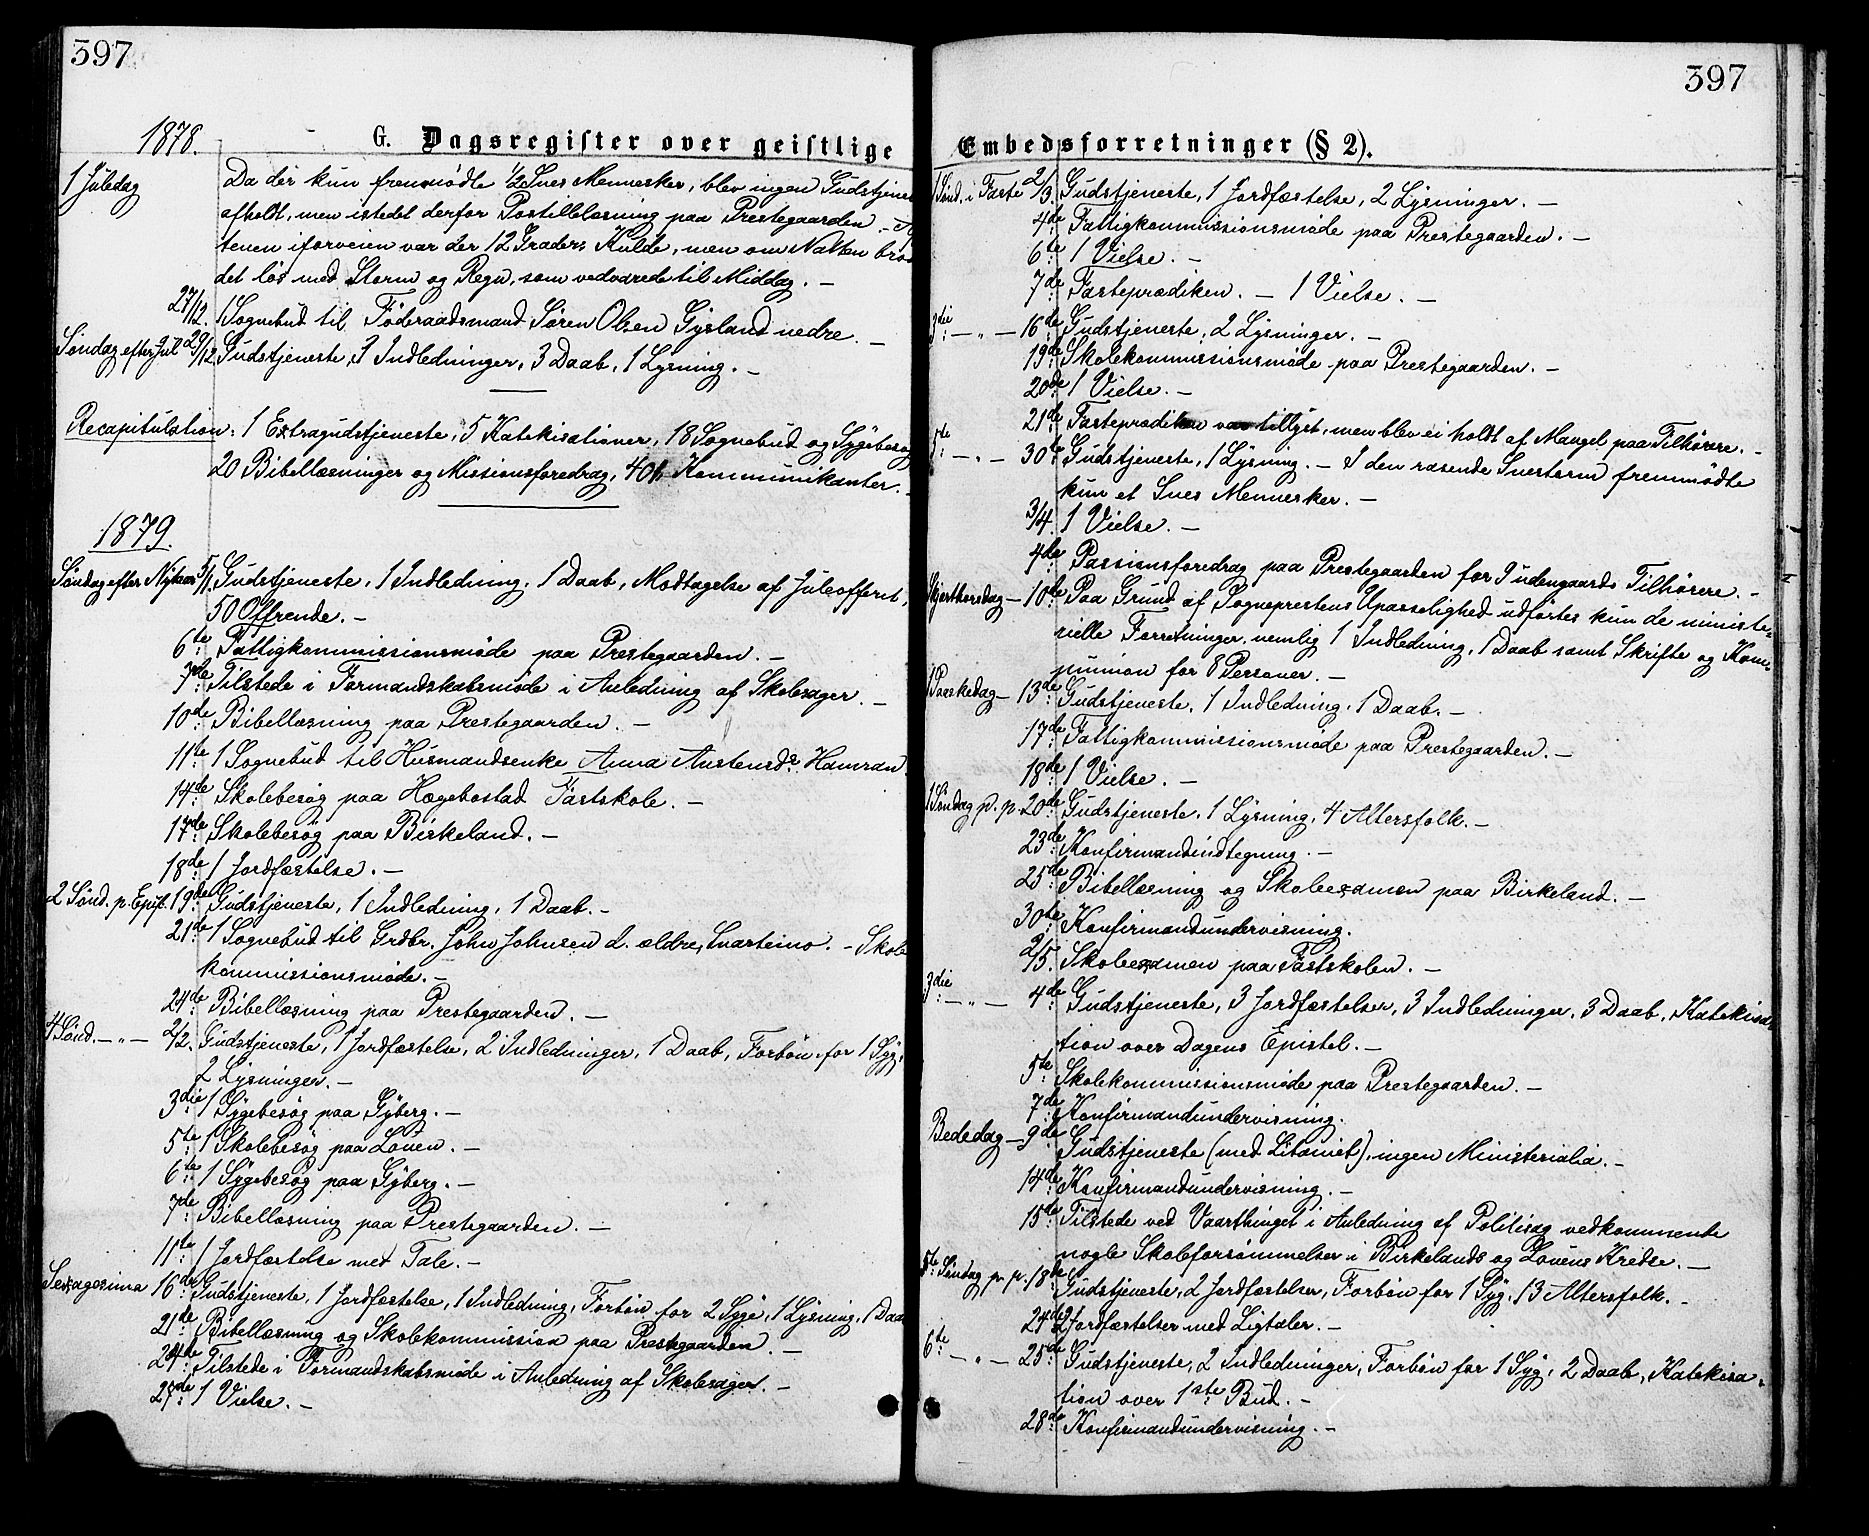 397
1878.
G. Dagsregister over geistlige
1 Juledag Da der kun fremmødte ½ Snes Mennesker, blev ingen Gudstjenes
afholdt, men istedet derfor Postillelæsning paa Prestegaarden. - Af
tenen iforveien var der 12 Graders Kulde, men om Natten brød
det løs med Storm og Regn, som vedvarede til Middag. -
27/12. 1 Sognebud til Føderaadsmand Søren Olsen Gysland nedre. -
Søndag efter Jul 29/12 Gudstjeneste, 3 Indledninger, 3 Daab, 1 Lysning. -
Recapitulation: 1 Extragudstjeneste, 5 Katekisationer, 18 Sognebud og Sygebesøg
20 Bibellæsninger og Missionsforedrag, 401 Kommunikanter. -
1879.
Søndag efter Nytaar 5/1. Gudstjeneste, 1 Indledning, 1 Daab, Modtagelse af Juleofferet,
50 Offrende. -
6te Fattigkommissionsmøde paa Prestegaarden. -
7de Tilstede i Formandskabsmøde i Anledning af Skolesager. -
10de Bibellæsning paa Prestegaarden. -
11te 1 Sognebud til Husmandsenke Anna Austensdr. Hamran
14de Skolebesøg paa Hægebostad Fastskole. -
17de Skolebesøg paa Birkeland. -
18de 1 Jordfæstelse. -
2 Sønd. p. Epif. 19de Gudstjeneste, 1 Indledning, 1 Daab. -
21de 1 Sognebud til Grdbr. John Johnsen d. ældre, Snarteimo. - Skole
kommissionsmøde. -
24de Bibellæsning paa Prestegaarden. -
4 Sønd. - " - 2/2. Gudstjeneste, 1 Jordfæstelse, 2 Indledninger, 1 Daab, Forbøn for 1 Syg,
2 Lysninger. -
3die 1 Sygebesøg paa Gyberg. -
5te 1 Skolebesøg paa Louen. -
6te 1 Sygebesøg paa Gyberg. -
7de Bibellæsning paa Prestegaarden. -
11te 1 Jordfæstelse med Tale. -
Sexagesima 16de Gudstjeneste, 1 Jordfæstelse, 1 Indledning, Forbøn for 2 Syge, 1 Lysning, 1 Daab
21de Bibellæsning og Skolekommission paa Prestegaarden. -
24de Tilstede i Formandskabsmøde i Anledning af Skolesager. -
27de 1 Vielse. -
397
Embedsforretninger (§ 2).
1 Sønd. i Faste 2/3. Gudstjeneste, 1 Jordfæstelse, 2 Lysninger. -
4de Fattigkommissionsmøde paa Prestegaarden. -
6te 1 Vielse. -
7de Fasteprædiken. - 1 Vielse. -
3die - " - 16de Gudstjeneste, 2 Lysninger. -
19de Skolekommissionsmøde paa Prestegaarden. -
20de 1 Vielse. -
21de Fasteprædiken var tillyst, men blev ei holdt af Mangel paa Tilhørere. -
5te - " - 30te Gudstjeneste, 1 Lysning. - I den rasende Snestorm fremmødte
kun et Snes Mennesker. -
3/4. 1 Vielse. -
4de Passionsforedrag paa Prestegaarden for Tudengaards Tilhørere. -
Skjærthorsdag - 10de Paa Grund af Sogneprestens Upasselighed udførtes kun de ministe-
rielle Forretninger, nemlig 1 Indledning, 1 Daab samt Skrifte og Kom-
munion for 8 Personer. -
1 Paaskedag - 13de Gudstjeneste, 1 Indledning, 1 Daab. -
17de Fattigkommissionsmøde paa Prestegaarden. -
18de 1 Vielse. -
1 Søndag p. p. 20de Gudstjeneste, 1 Lysning, 4 Altersfolk. -
23de Konfirmandindtegning. -
25de Bibellæsning og Skoleexamen paa Birkeland. -
30te Konfirmandundervisning.
2/5. Skoleexamen paa Fastskolen. -
3die - " - 4de Gudstjeneste, 3 Jordfæstelser, 3 Indledninger, 3 Daab, Katekisa-
tion over Dagens Epistel. -
5te Skolekommissionsmøde paa Prestegaarden. -
7de Konfirmandundervisning.
Bededag - 9de Gudstjeneste (med Litaniet), ingen Ministerialia. -
14de Konfirmandundervisning. -
15de Tilstede ved Vaarthinget i Anledning af Politisag vedkommende
nogle Skoleforsømmelser i Birkelands og Louens Kredse. -
5te Søndag p. p. 18de Gudstjeneste, 2 Jordfæstelser, Forbøn for 1 Syg, 13 Altersfolk. -
24de 2 Jordfæstelser med Ligtaler. -
6te - " - 25de Gudstjeneste, 2 Indledninger, Forbøn for 1 Syg, 2 Daab, Katekisa-
tion over 1ste Bud. -
28de Konfirmandundervisning. -